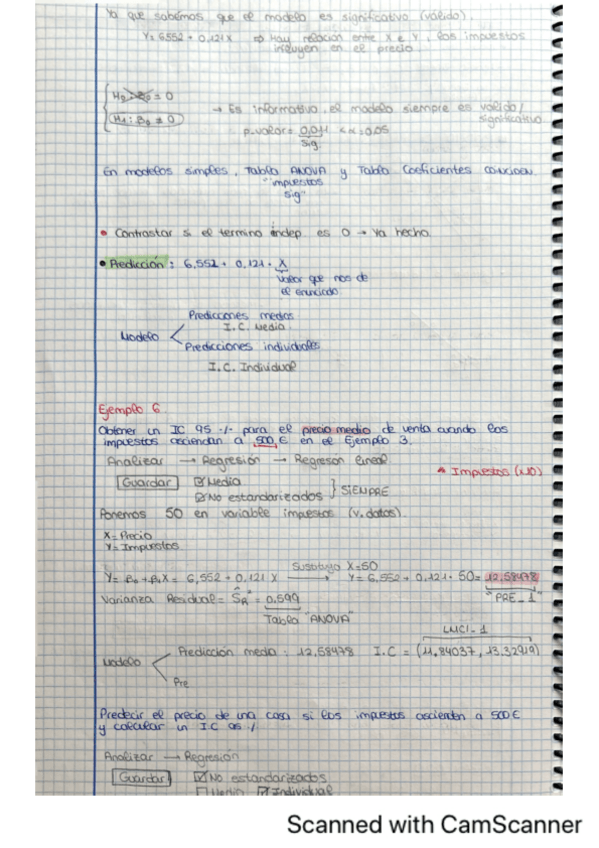 Ya que sabemos que el modelo es significativo (válido).
Y= 6,552 + 0,121X ⇒ Hay relación entre X e Y, los impuestos
influyen en el precio
H0: β0 = 0
H1: β0 ≠ 0
→ Es informativo, el modelo siempre es válido/
significativo
p-valor = 0,011 < α = 0,05
Sig.
En modelos simples, Tabla ANOVA y Tabla Coeficientes
"impuestos
sig"
• Contrastar si el termino indep. es 0 → Ya hecho
• Predicción: 6,552 + 0,121 · X
valor que nos de
el enunciado
Modelo
Predicciones medias
I.C. Media
Predicciones individuales
I.C. Individual
Ejemplo 6
Obtener un IC 95 % para el precio medio de venta cuando los
impuestos asciendan a 500 € en el Ejemplo 3.
Analizar → Regresión → Regresión lineal
Impuestos (x10)
Guardar ☑ Media
☑ No estandarizados } SIEMPRE
Ponemos 50 en variable impuestos (v. datos).
X= Precio
Y= Impuestos
Y= β0 + β1X = 6,552 + 0,121 X Sustituyo X=50 → Y= 6,552 + 0,121 · 50 = 12,58478
"PRE_1"
Varianza Residual = ŜR² = 0,599
Tabla "ANOVA"
LMCI_1
Modelo
Predicción media: 12,58478 I.C = (11,84037, 13,32919)
Pre
Predecir el precio de una casa si los impuestos ascienden a 500 €
y calcular un IC 95 %
Analizar → Regresión
Guardar ☑ No estandarizados
☐ Media ☑ Individual
Scanned with CamScanner